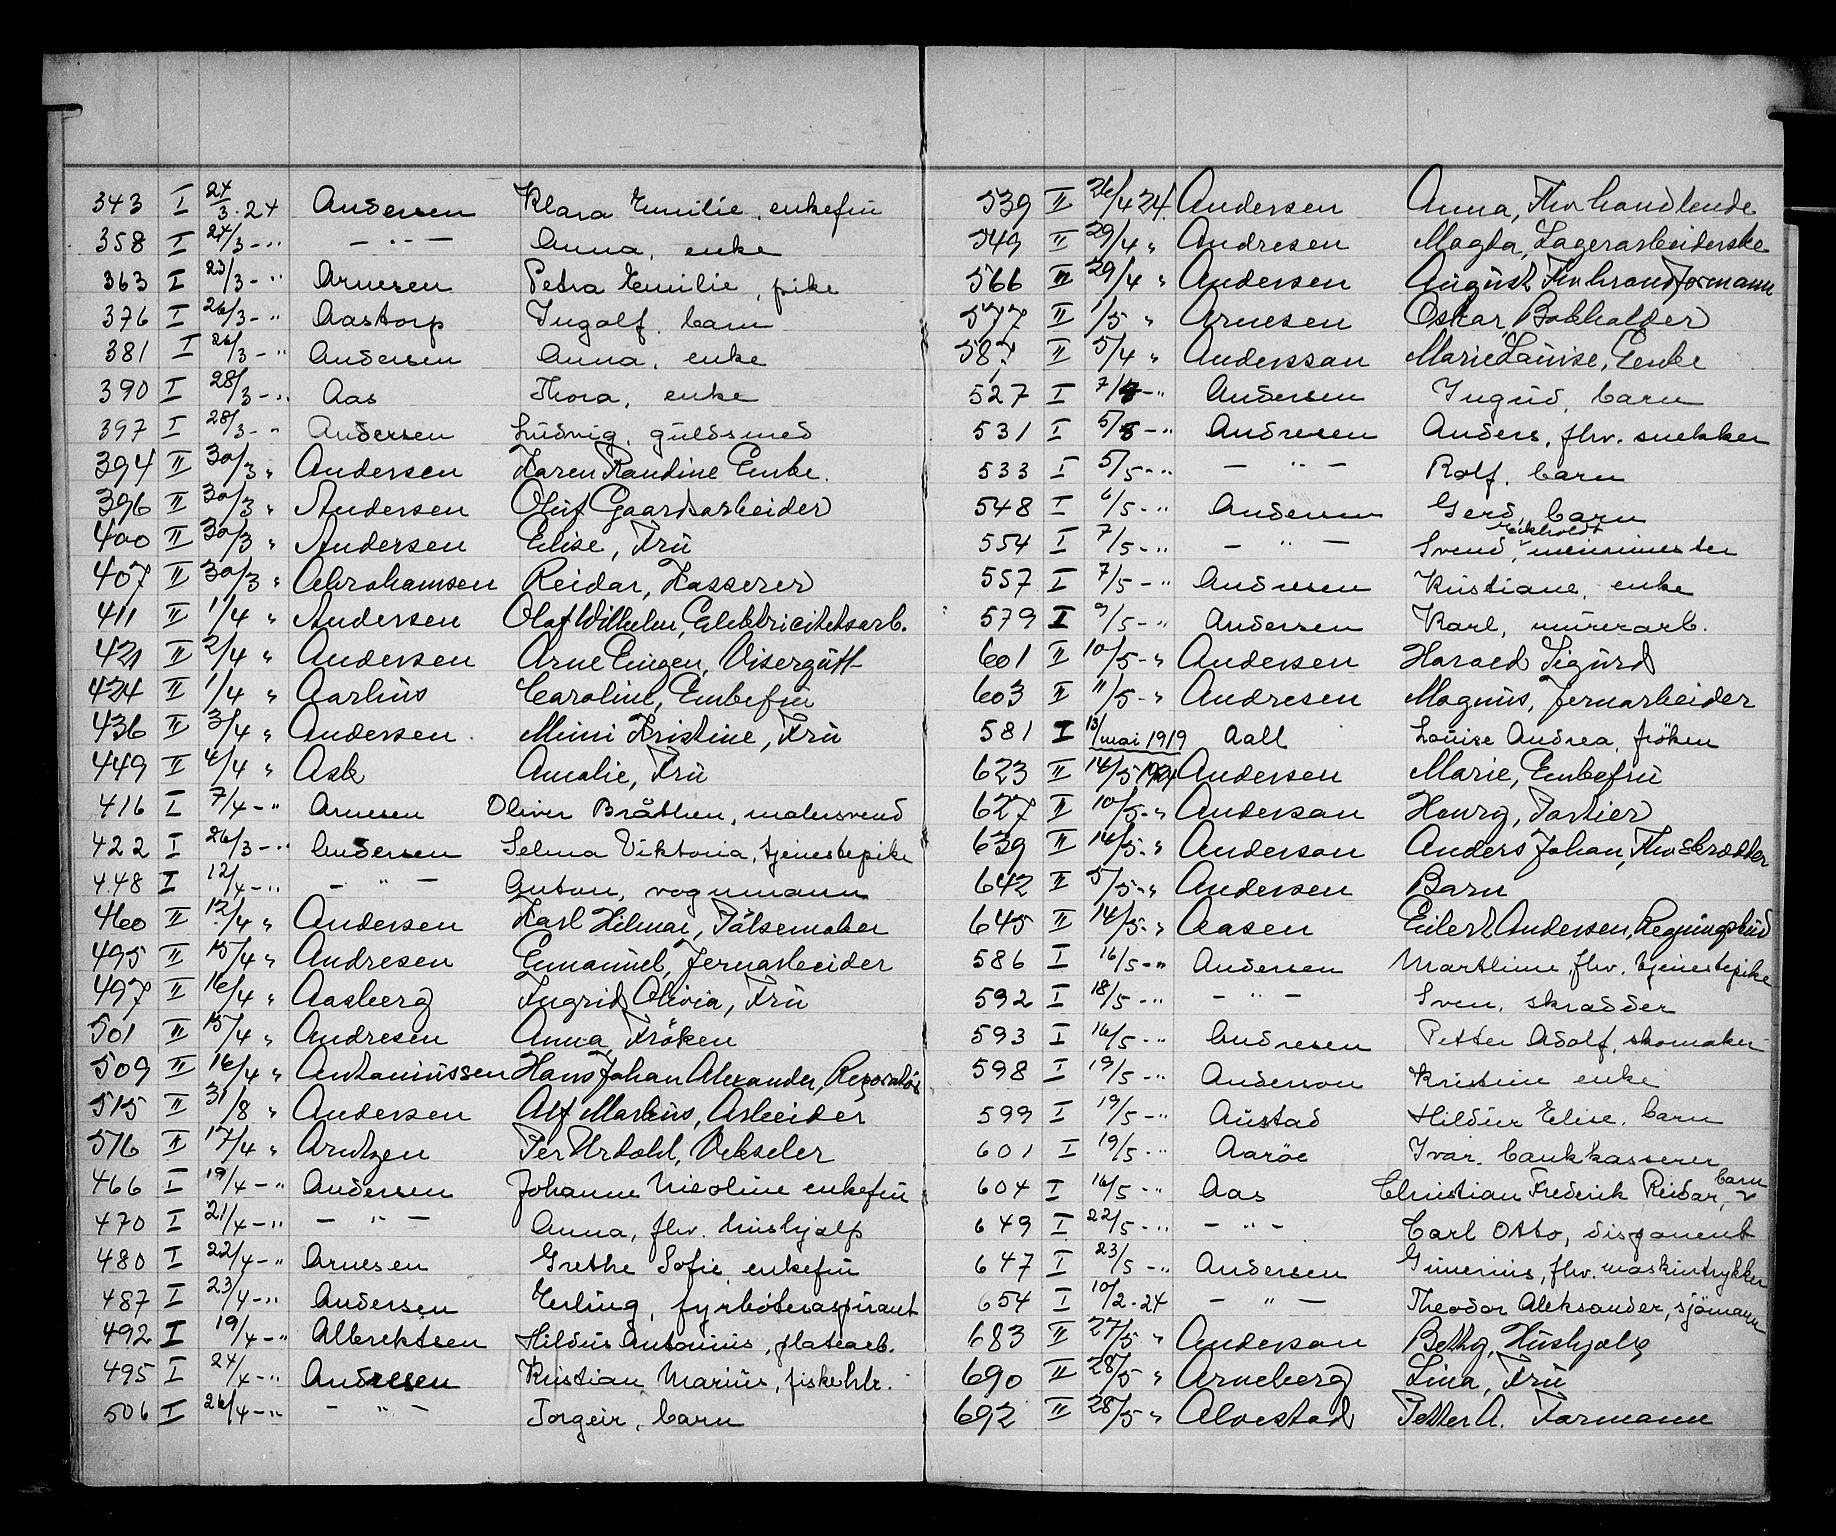 343 I 24/3.24 Andersen Klara Emilie, enkefru
358 I 24/3 - " — " — Anna, enke
363 I 23/3 - " Arnesen Petra Emilie, pike
376 I 26/3 - " Aastorp Ingolf, barn
381 I 26/3 - " Andersen Anna, enke
390 I 28/3 - " Aas Thora, enke
397 I 28/3 - " Andersen Ludvig, guldsmed
394 II 30/3 " Andersen Karen Randine Enke.
396 II 30/3 " Andersen Oluf Gaardsarbeider
400 II 30/3 " Andersen Elise, Fru
407 II 30/3 " Abrahamsen Reidar, Kasserer
411 II 1/4 " Andersen Olaf Wilhelm, Elektricitetsarb.
421 II 2/4 " Andersen Arne Eugen, Visergutt
424 II 1/4 " Aarhus Caroline, Enkefru
436 II 3/4 " Andersen. Mimi Kristine, Fru
449 II 4/4 " Ask Amalie, Fru
416 I 7/4 - " Arnesen Oliver Bråthen, malersvend
422 I 26/3 - " Andersen Selma Viktoria, tjenestepike
448 I 12/4 - " — " — Anton, vognmann
460 II 12/4 " Andersen Karl Hilmar, Pølsemaker
495 II 15/4 " Andresen Emanuel, Jernarbeider
497 II 16/4 " Aasberg Ingrid Olivia, Fru
501 II 15/4 " Andresen Anna, Frøken
509 II 16/4 " Antoniussen Hans Johan Alexander, Reparatør
515 II 31/8 " Andersen Alf Markus, Arbeider
516 II 17/4 " Arntzen Per Urdahl, Vekseler
466 I 19/4 - " Andersen Johanne Nicoline enkefru
470 I 21/4 - " — " — Anna, fhv. hushjelp
480 I 22/4 - " Arnesen Grethe Sofie, enkefru
487 I 23/4 - " Andersen Erling, fyrbøteraspirant
492 I 19/4 - " Albrektsen Hildus Antonius, platearb.
495 I 24/4 - " Andresen Kristian Marius, fiskehlr.
506 I 26/4 - " — " — Torgeir, barn
539 II 26/4 24. Andersen Anna, Fhv handlende
549 II 29/4 " Andresen Magda, Lagerarbeiderske
566 II 29/4 " Andersen August, Fhv brandformann
577 II 1/5 " Arnesen Oskar, Bokholder
587 II 5/4 " Anderssen Marie Louise, Enke
527 I 7/5 - " Andersen Ingrid, barn
531 I 5/5 - " Andresen Anders, fhv. snekker
533 I 5/5 - " — " — Rolf, barn
548 I 6/5 - " Andersen Gerd, barn
554 I 7/5 - " — " — Svend, murmester
557 I 7/5 - " Andresen Kristiane, enke
579 I 9/5 - " Andersen Karl, murerarb.
601 II 10/5 - " Andersen Harald Sigurd
603 II 11/5 - " Andresen Magnus, Jernarbeider
581 I 13/mai 1919 Aall Louise Andrea, frøken
623 II 14/5 1924 Andersen Marie, Enkefru
627 II 10/5 - " Anderson Henry, Portier
639 II 16/5 - " Anderson Anders Johan, Fhv Skrædder
642 II 5/5 - " Andersen Barn
645 II 14/5 - " Aasen Eilert Andersen, Regningsbud
586 I 16/5 - " Andersen Marthine, fhv. tjenestepike
592 I 18/5 - " — " — Sven, skrædder
593 I 16/5 - " Andresen Petter Adolf, skomaker
598 I 19/5 - " Anderson Kristine enke
599 I 19/5 - " Austad Hildur Elise, barn
601 I 19/5 - " Aarøe Ivar, bankkasserer
604 I 16/5 - " Aas Christian Frederik Reidar, barn
649 I 22/5 - " — " — Carl Otto, disponent
647 I 23/5 - " Andersen Gunerius, fhv. maskintrykker
654 I 10/2-24 — " — Theodor Aleksander, sjømann
683 II 27/5 " Anderson Betty, Hushjelp
690 II 28/5 " Arneberg Lina, Fru
692 II 28/5 " Alvestad Petter A. Formann